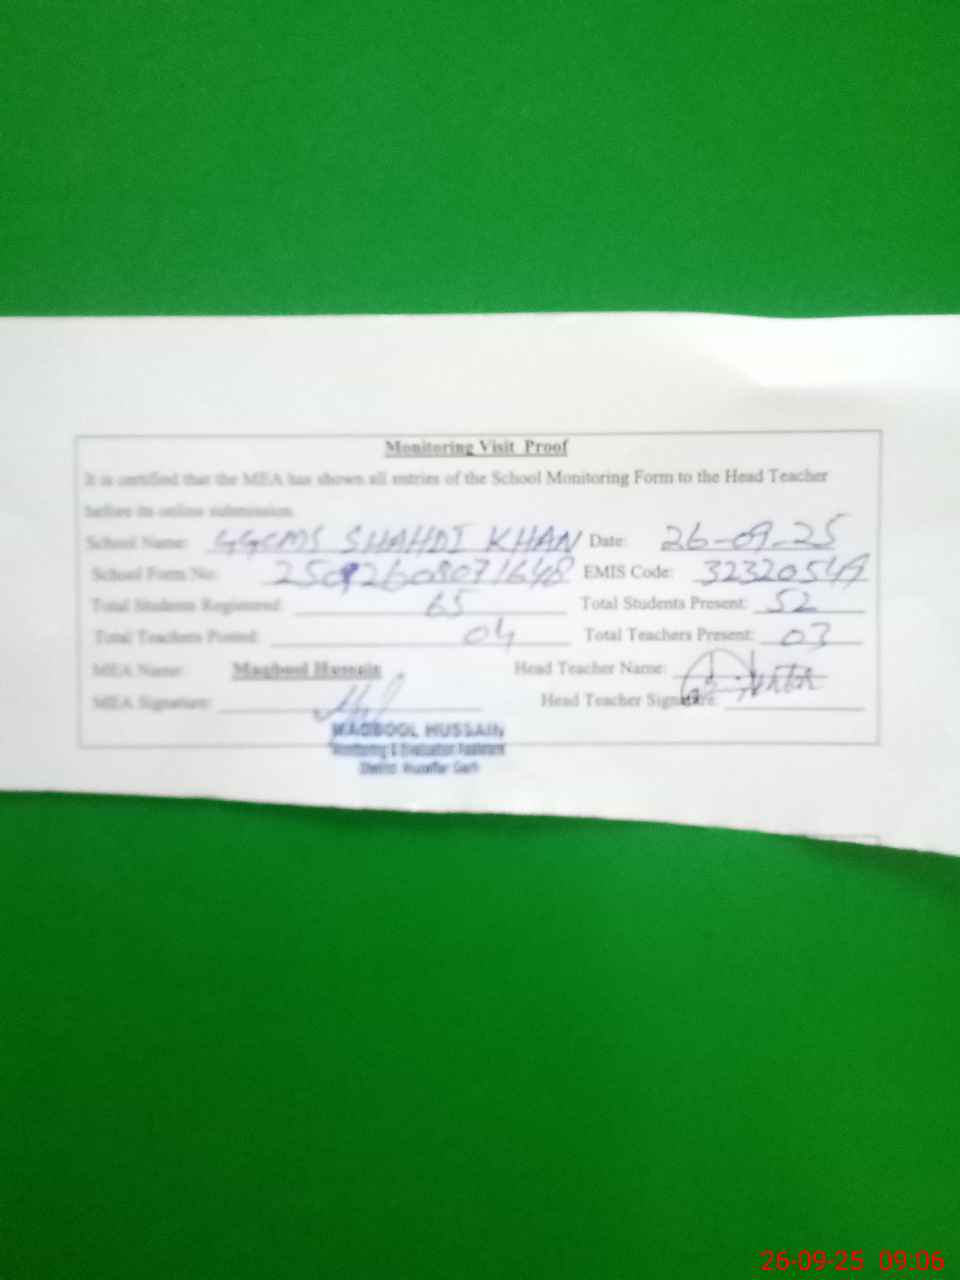 Monitoring Visit Proof
It is certified that the MEA has shown all entries of the School Monitoring Form to the Head Teacher
before its online submission.
School Name: GGCMS SHAHDI KHAN Date: 26-09-25
School Form No: 25092608071648 EMIS Code: 32320549
Total Students Registered: 65 Total Students Present: 52
Total Teachers Posted: 04 Total Teachers Present: 03
MEA Name: Maqbool Hussain Head Teacher Name:
MEA Signature: Head Teacher Signature:
MAQBOOL HUSSAIN
Monitoring & Evaluation Assistant
District Muzaffar Garh
26-09-25 09:06